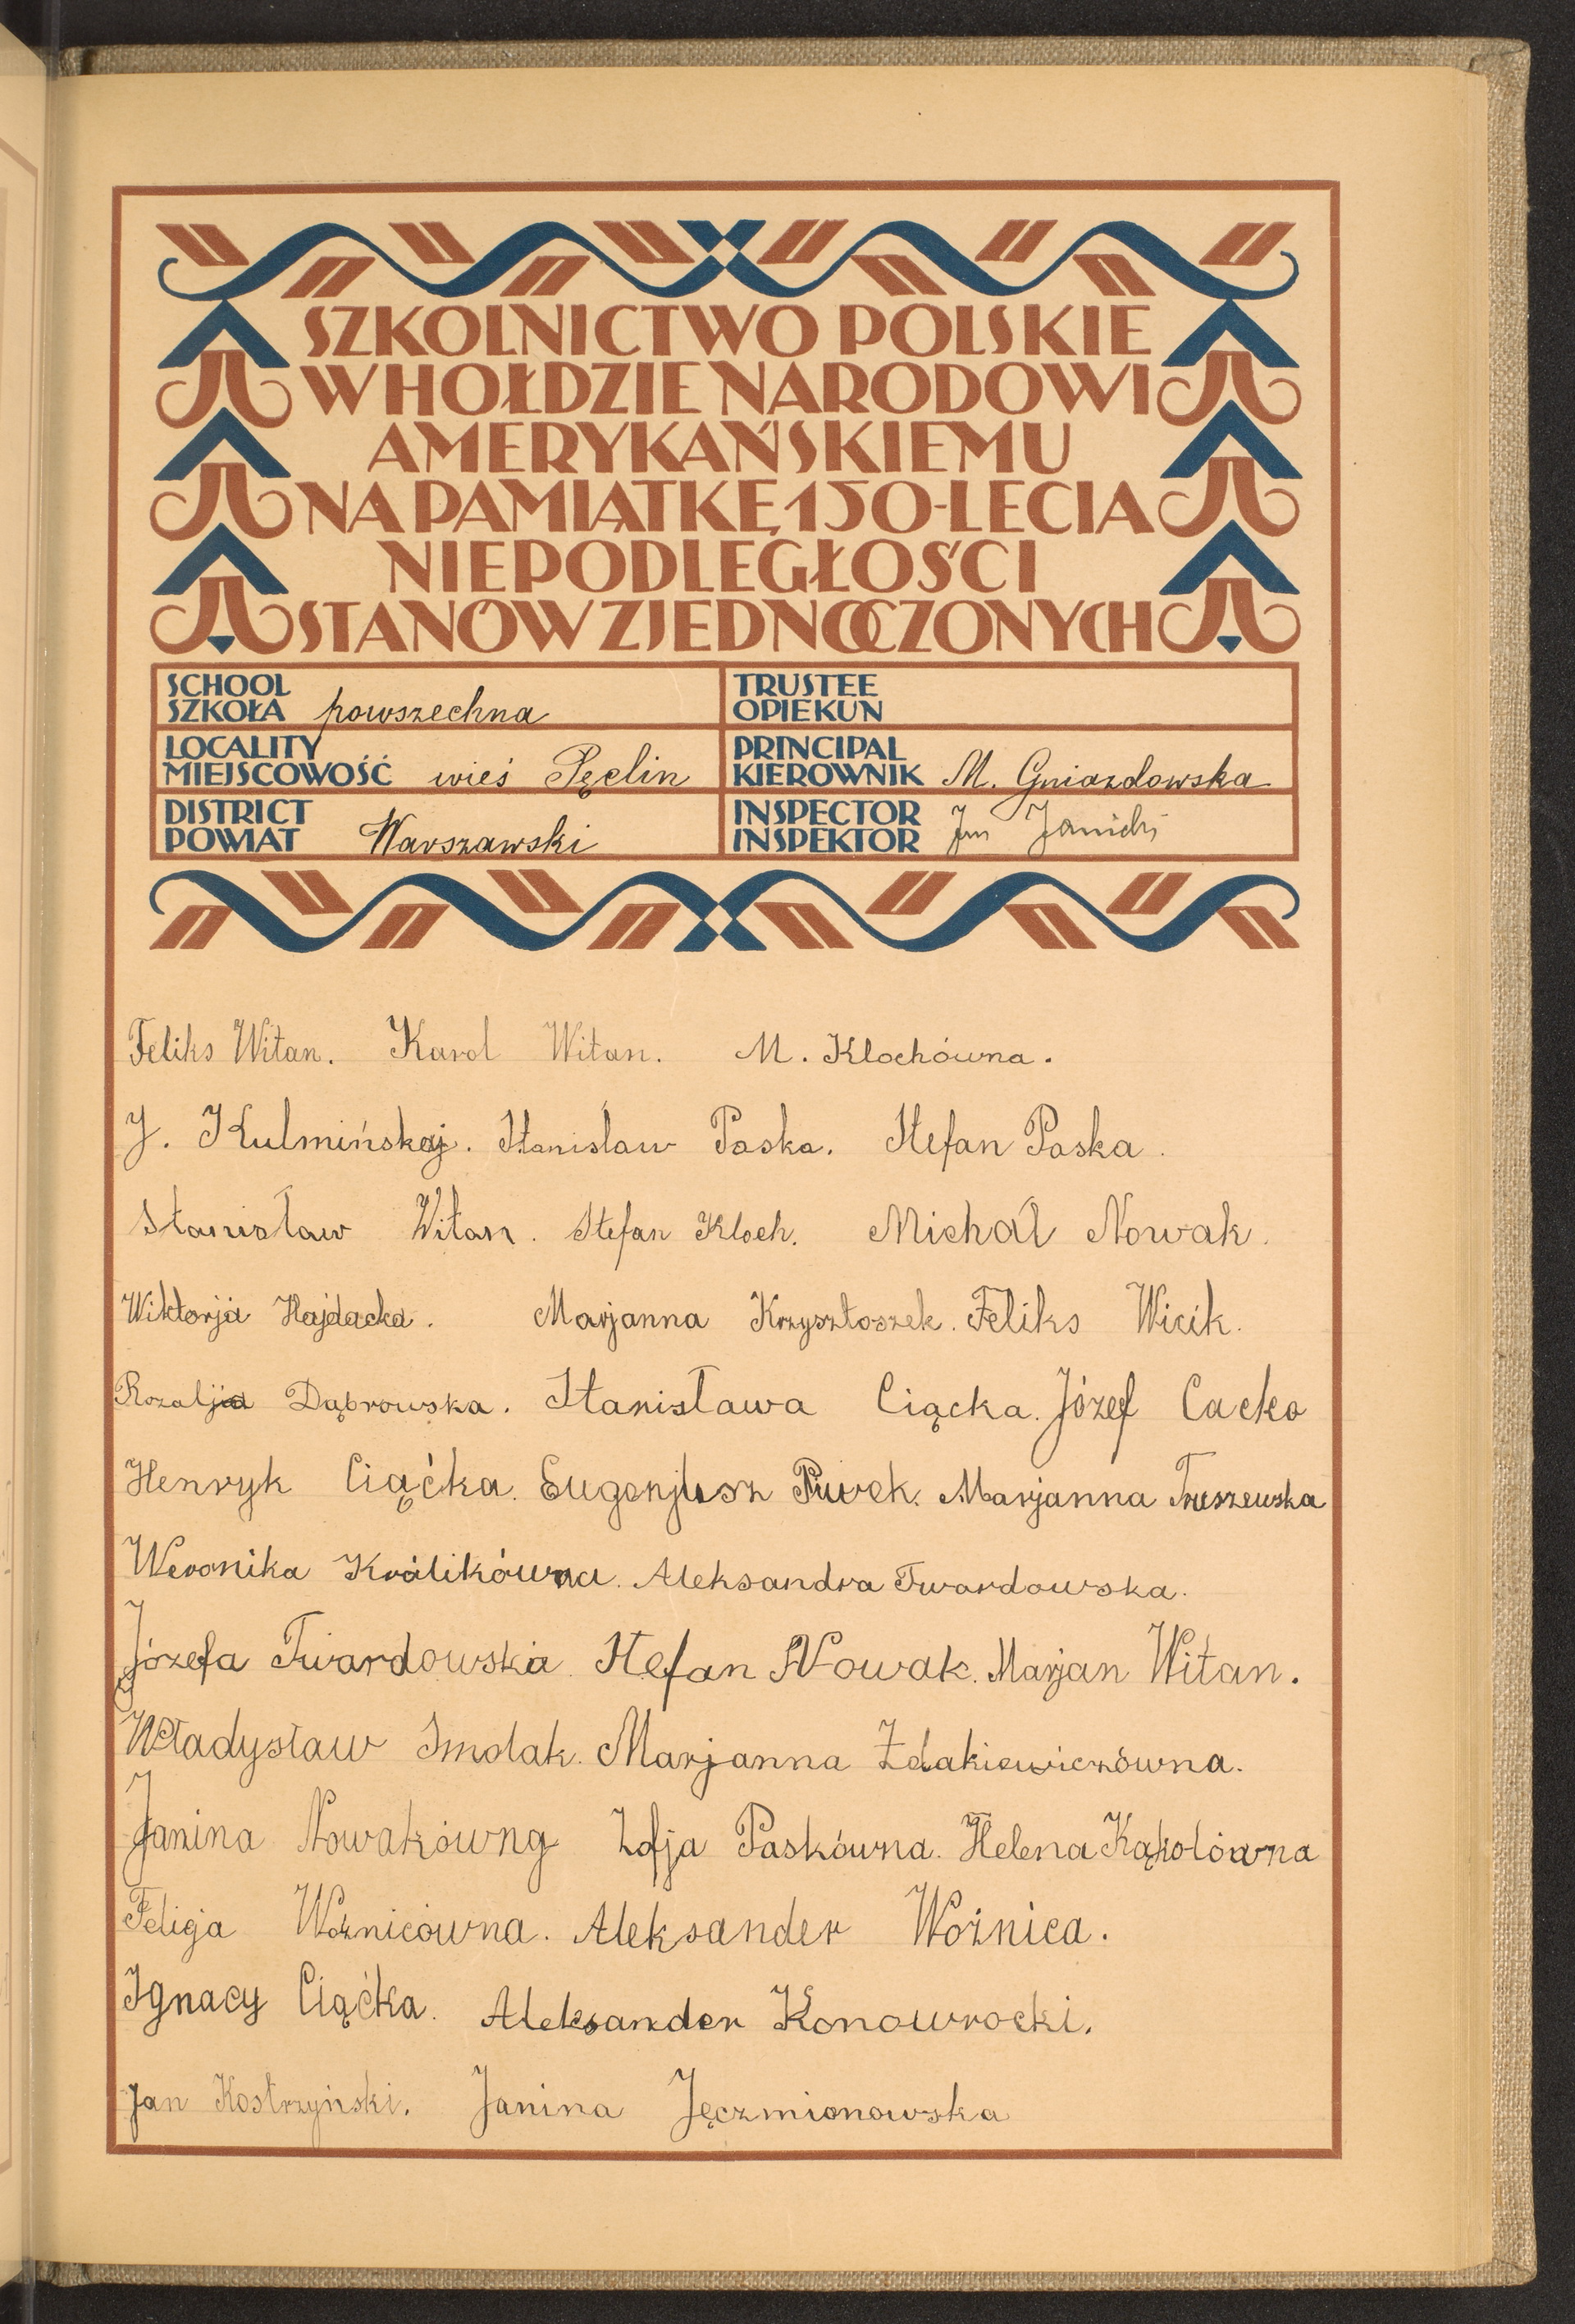 SZKOLNICTWO POLSKIE
W HOŁDZIE NARODOWI
AMERYKAŃSKIEMU
NA PAMIĄTKĘ 150-LECIA
NIEPODLEGŁOŚCI
STANÓW ZJEDNOCZONYCH
SCHOOL
SZKOŁA powszechna
TRUSTEE
OPIEKUN
LOCALITY
MIEJSCOWOŚĆ wieś Pęclin
PRINCIPAL
KIEROWNIK M. Gniazdowska
DISTRICT
POWIAT Warszawski
INSPECTOR
INSPEKTOR Jan Janicki
Feliks Witan. Karol Witan. M. Klochówna.
J. Kulmińskaj. Stanisław Paska. Stefan Paska.
Stanisław Witan. Stefan Kloch. Michał Nowak.
Wiktorja Hajdacka. Marjanna Krzysztoszek. Feliks Wicik.
Rozalja Dąbrowska. Stanisława Ciącka. Józef Cacko
Henryk Ciaćka. Eugenjusz Piwek. Marjanna Truszewska
Weronika Królikówna. Aleksandra Twardowska.
Józefa Twardowska. Stefan Nowak. Marjan Witan.
Władysław Smolak. Marjanna Zdakiewiczówna.
Janina Nowakówna Zofja Paskówna. Helena Kąkolówna
Felicja Woźnicówna. Aleksander Woźnica.
Ignacy Ciąćka. Aleksander Konowrocki.
Jan Kostrzyński. Janina Jęczmionowska